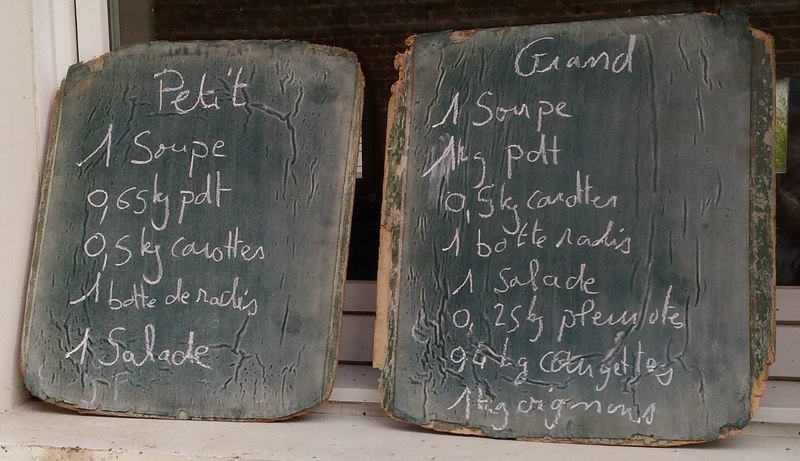 Petit
1 Soupe
0,65kg pdt
0,5kg carottes
1 botte de radis
1 Salade
Grand
1 Soupe
1kg pdt
0,5kg carottes
1 botte radis
1 Salade
0,25kg pleurotes
0,4kg courgettes
1kg oignons